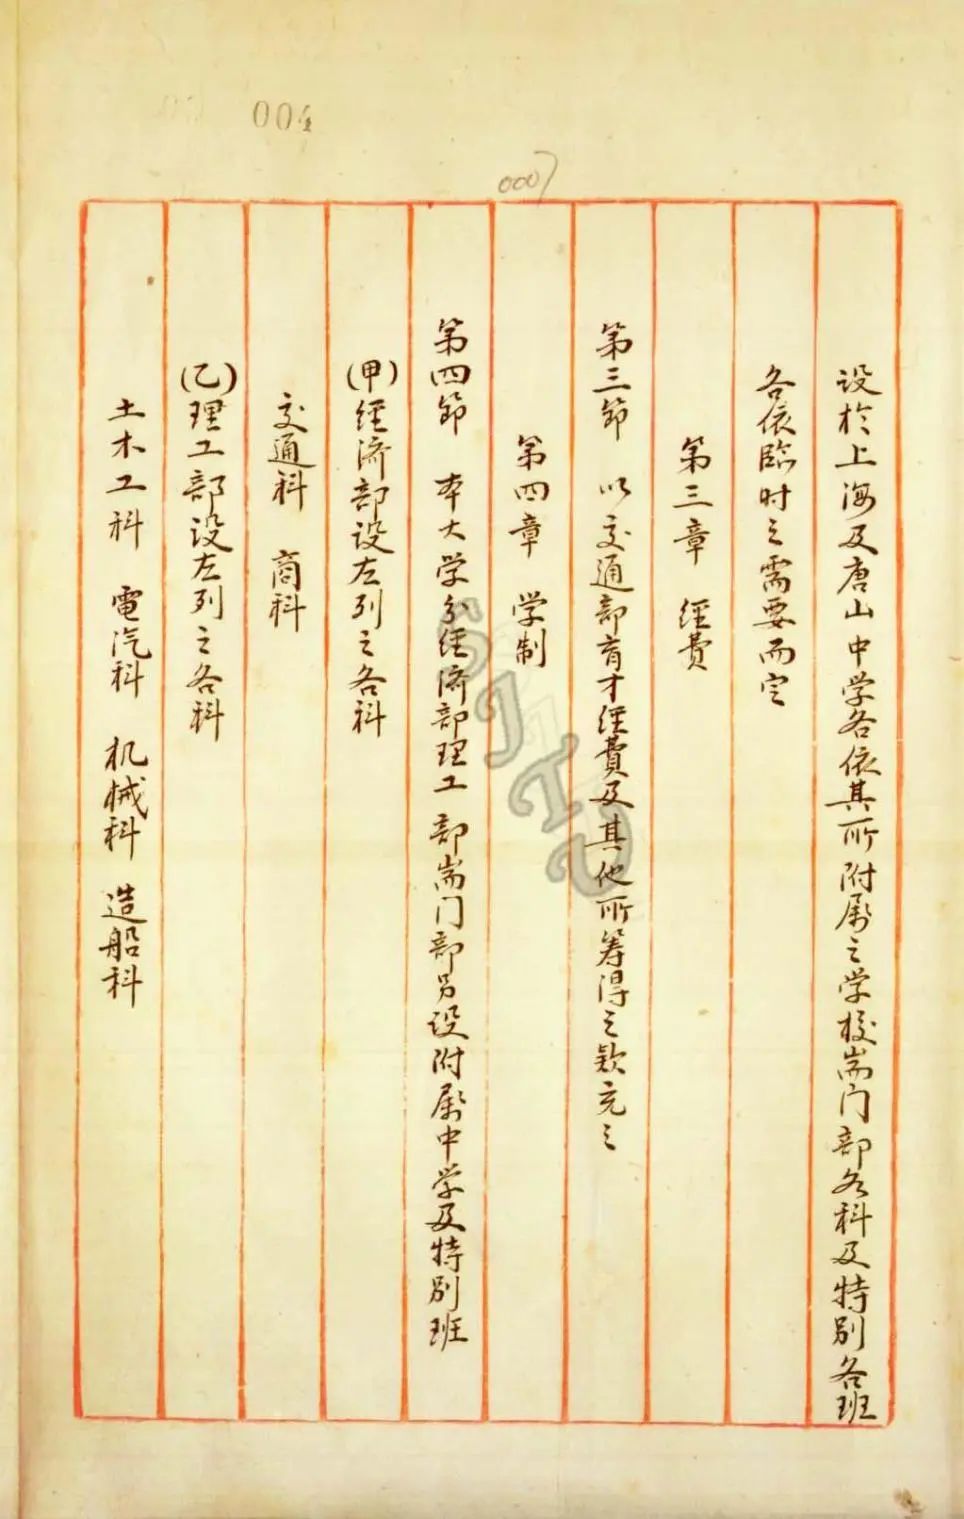 004
0007
设於上海及唐山中学各依其所附属之学校耑门部各科及特别各班
各依臨时之需要而定
第三章 經費
第三節 以交通部育才經費及其他所筹得之欵充之
第四章 学制
第四節 本大学分經济部理工部耑门部另设附属中学及特别班
(甲)經济部设左列之各科
交通科 商科
(乙)理工部设左列之各科
土木工科 電汽科 机械科 造船科
SJTU